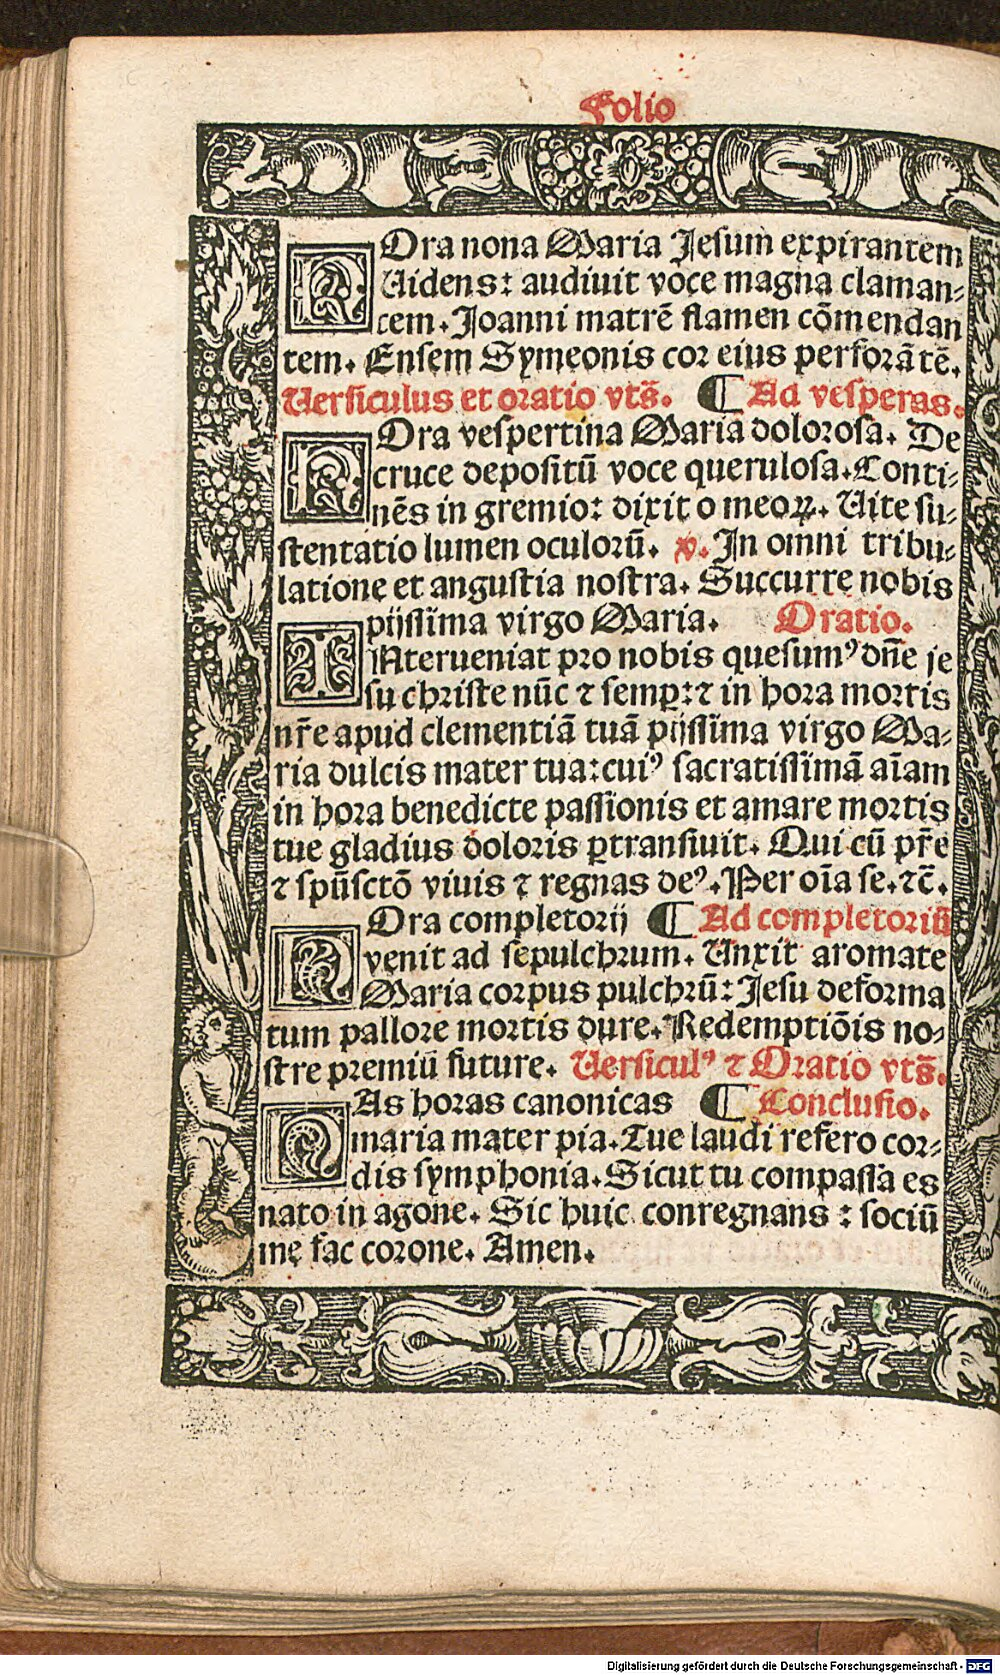 Folio
HOra nona Maria Jesum expirantem
Uidens: audiuit voce magna claman⸗
tem. Joanni matrē flamen cōmendan
tem. Ensem Symeonis cor eius perforātē.
Uersiculus et oratio vts̄. ¶ Ad vesperas.
HOra vespertina Maria dolorosa. De
cruce depositū voce querulosa. Conti⸗
nēs in gremio: dixit o meoꝝ. Uite su⸗
stentatio lumen oculorū. v. In omni tribu⸗
latione et angustia nostra. Succurre nobis
pijssima virgo Maria. Oratio.
INterueniat pro nobis quesumꝰ dn̄e je
su christe nūc ⁊ semꝑ: ⁊ in hora mortis
nr̄e apud clementiā tuā pijssima virgo Ma⸗
ria dulcis mater tua: cuiꝰ sacratissimā aīam
in hora benedicte passionis et amare mortis
tue gladius doloris ꝑtransiuit. Qui cū pr̄e
⁊ spūsctō viuis ⁊ regnas deꝰ. Per oīa se. ⁊c̄.
HOra completorij ¶ Ad completoriū
venit ad sepulchrum. Unxit aromate
Maria corpus pulchrū: Jesu deforma
tum pallore mortis dure. Redemptiōis no⸗
stre premiū future. Uersiculꝰ ⁊ Oratio vts̄.
HAs horas canonicas ¶ Conclusio.
maria mater pia. Tue laudi refero cor⸗
dis symphonia. Sicut tu compassa es
nato in agone. Sic huic conregnans: sociū
me fac corone. Amen.
Digitalisierung gefördert durch die Deutsche Forschungsgemeinschaft - DFG